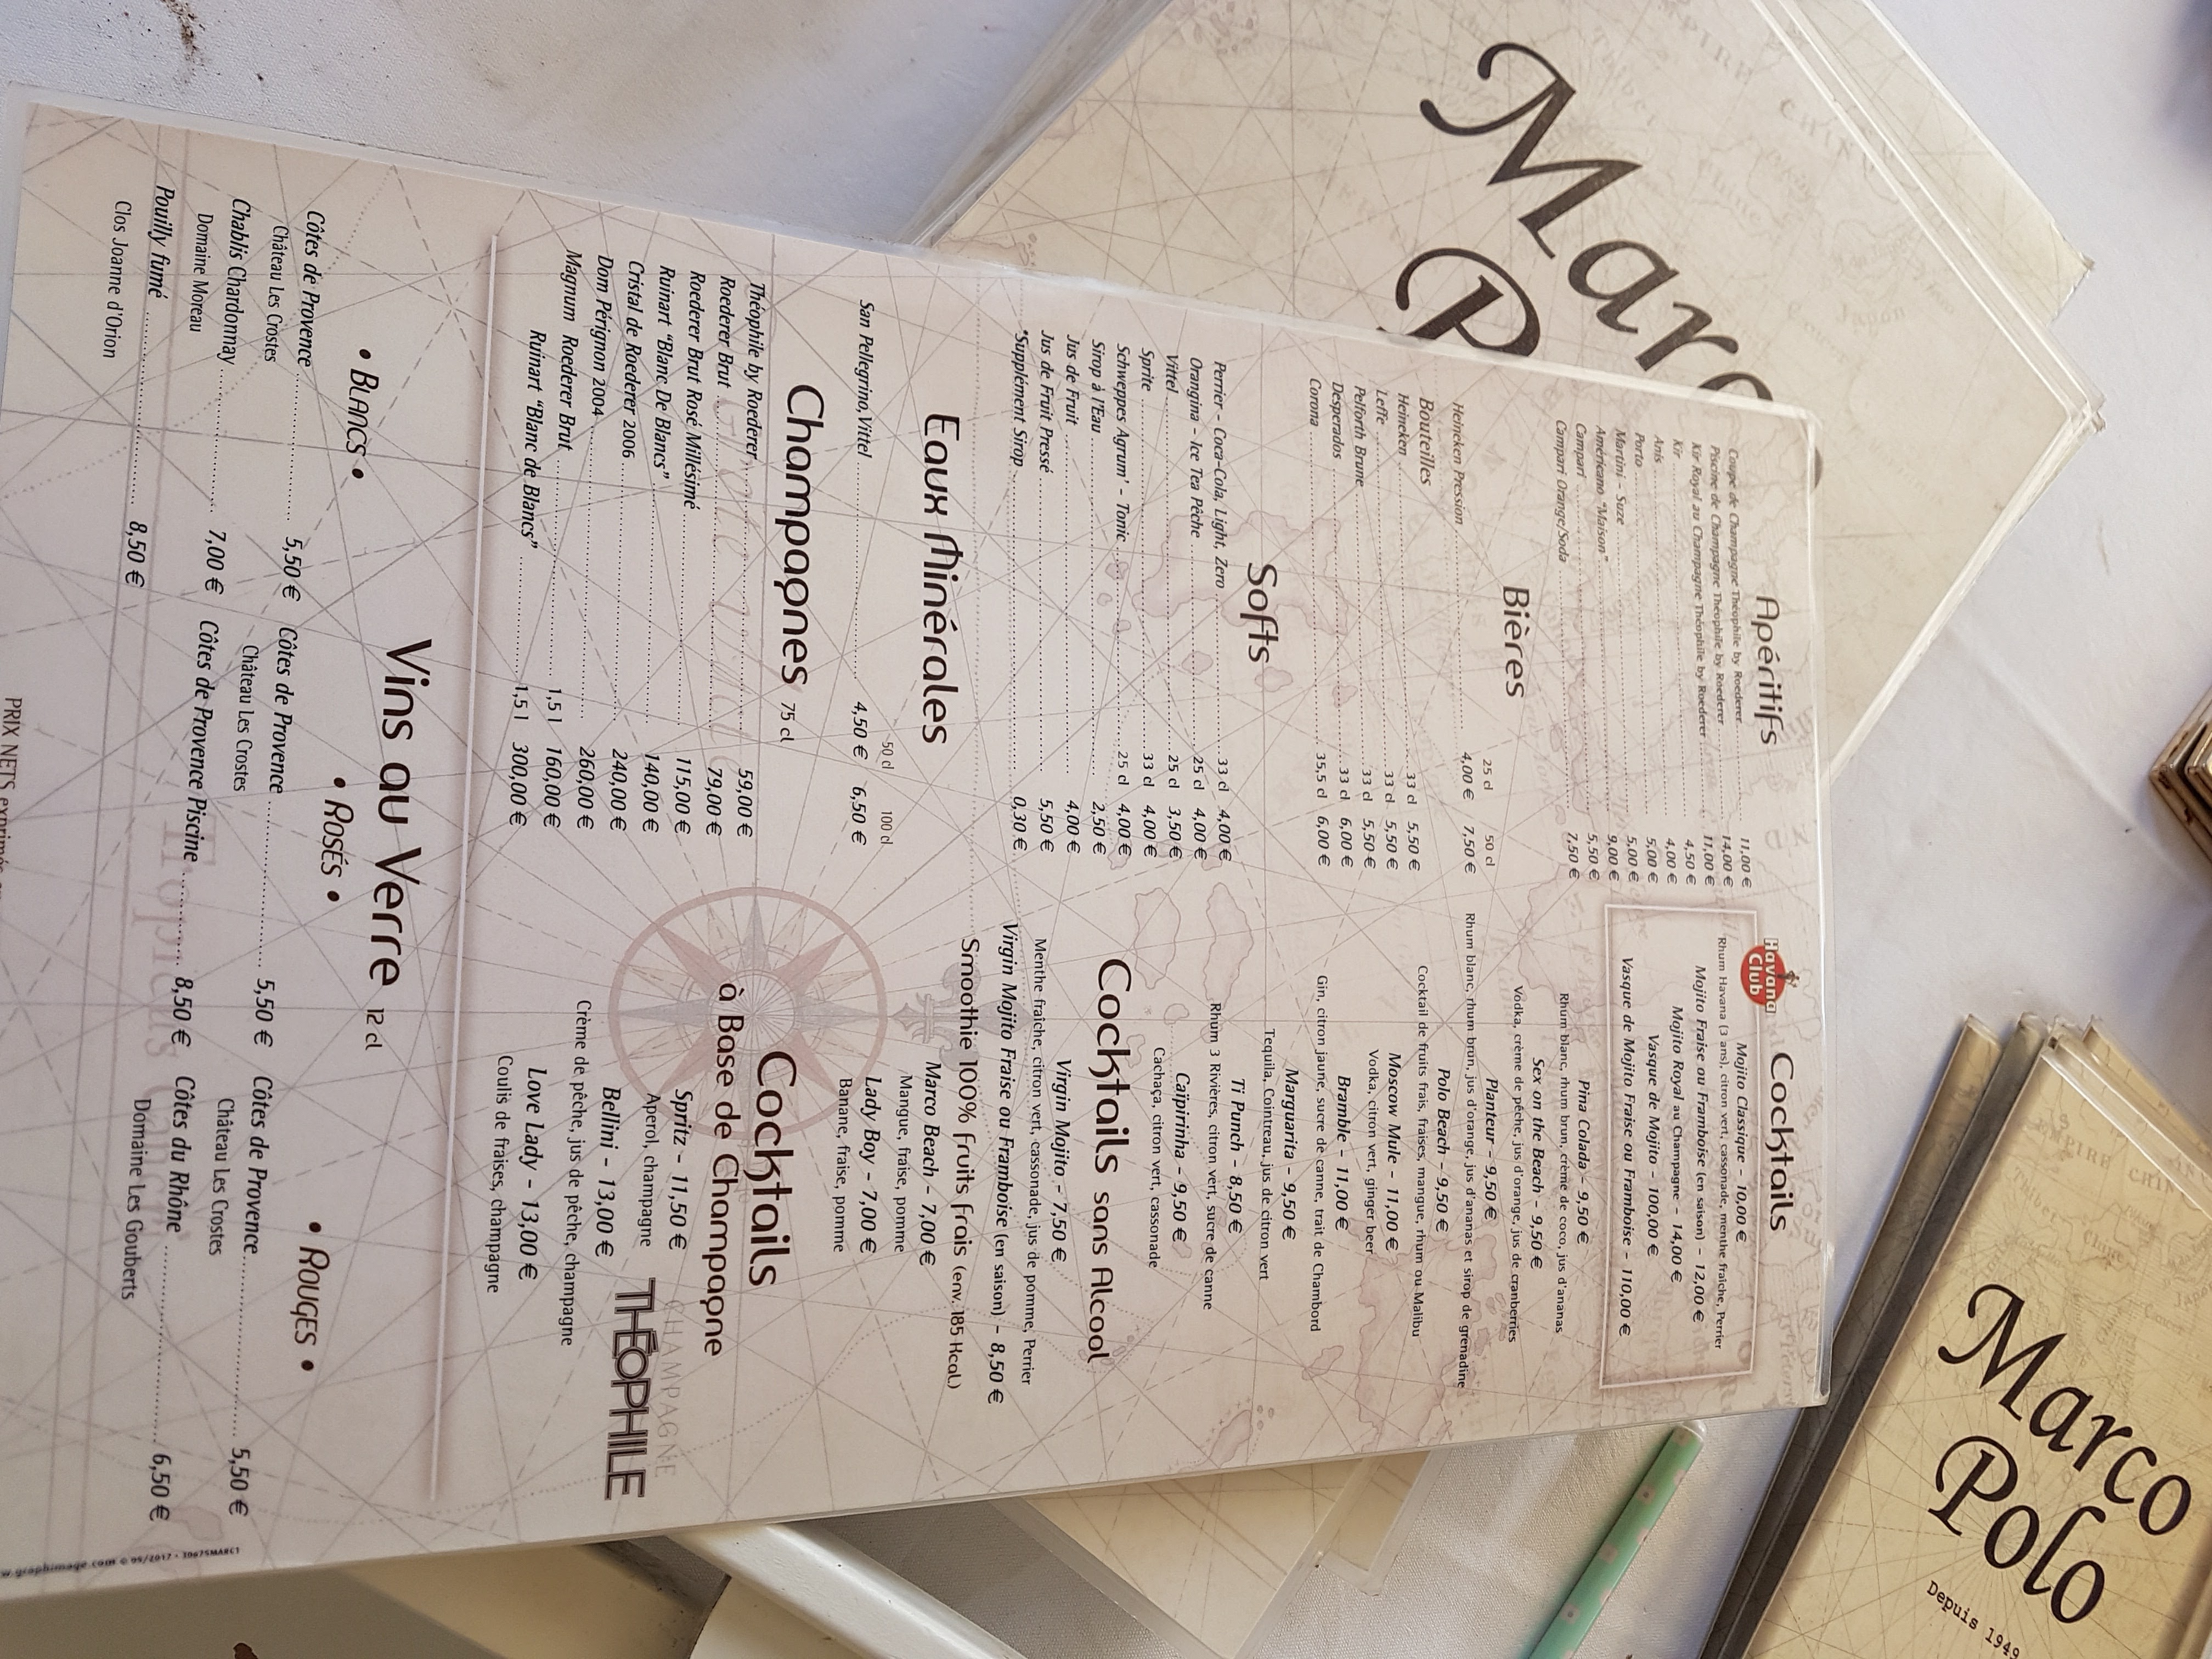 Apéritifs
Coupe de Champagne Théophile by Roederer 11,00 €
Piscine de Champagne Théophile by Roederer 14,00 €
Kir Royal au Champagne Théophile by Roederer 11,00 €
Kir 4,50 €
Anis 4,00 €
Porto 5,00 €
Martini - Suze 5,00 €
Américano "Maison" 9,00 €
Campari 5,50 €
Campari Orange/Soda 7,50 €
Bières
25 cl 50 cl
Heineken Pression 4,00 € 7,50 €
Bouteilles
Heineken 33 cl 5,50 €
Leffe 33 cl 5,50 €
Pelforth Brune 33 cl 5,50 €
Desperados 33 cl 6,00 €
Corona 35,5 cl 6,00 €
Softs
Perrier - Coca-Cola, Light, Zero 33 cl 4,00 €
Orangina - Ice Tea Pêche 25 cl 4,00 €
Vittel 25 cl 3,50 €
Sprite 33 cl 4,00 €
Schweppes Agrum' - Tonic 25 cl 4,00 €
Sirop à l'Eau 2,50 €
Jus de Fruit 4,00 €
Jus de Fruit Pressé 5,50 €
*Supplément Sirop 0,30 €
Eaux Minérales
50 cl 100 cl
San Pellegrino, Vittel 4,50 € 6,50 €
Champagnes 75 cl
Théophile by Roederer 59,00 €
Roederer Brut 79,00 €
Roederer Brut Rosé Millésimé 115,00 €
Ruinart "Blanc De Blancs" 140,00 €
Cristal de Roederer 2006 240,00 €
Dom Pérignon 2004 260,00 €
Magnum Roederer Brut 1,5 l 160,00 €
Ruinart "Blanc de Blancs" 1,5 l 300,00 €
Cocktails
Havana Club
Mojito Classique - 10,00 €
Rhum Havana (3 ans), citron vert, cassonade, menthe fraîche, Perrier
Mojito Fraise ou Framboise (en saison) - 12,00 €
Mojito Royal au Champagne - 14,00 €
Vasque de Mojito - 100,00 €
Vasque de Mojito Fraise ou Framboise - 110,00 €
Pina Colada - 9,50 €
Rhum blanc, rhum brun, crème de coco, jus d'ananas
Sex on the Beach - 9,50 €
Vodka, crème de pêche, jus d'orange, jus de cranberries
Planteur - 9,50 €
Rhum blanc, rhum brun, jus d'orange, jus d'ananas et sirop de grenadine
Polo Beach - 9,50 €
Cocktail de fruits frais, fraises, mangue, rhum ou Malibu
Moscow Mule - 11,00 €
Vodka, citron vert, ginger beer
Bramble - 11,00 €
Gin, citron jaune, sucre de canne, trait de Chambord
Marguarita - 9,50 €
Tequila, Cointreau, jus de citron vert
Ti Punch - 8,50 €
Rhum 3 Rivières, citron vert, sucre de canne
Caïpirinha - 9,50 €
Cachaça, citron vert, cassonade
Cocktails sans Alcool
Virgin Mojito - 7,50 €
Menthe fraîche, citron vert, cassonade, jus de pomme, Perrier
Virgin Mojito Fraise ou Framboise (en saison) - 8,50 €
Smoothie 100% Fruits Frais (env. 185 Kcal)
Marco Beach - 7,00 €
Mangue, fraise, pomme
Lady Boy - 7,00 €
Banane, fraise, pomme
Cocktails
à Base de Champagne
Spritz - 11,50 €
Aperol, champagne
Bellini - 13,00 €
Crème de pêche, jus de pêche, champagne
Love Lady - 13,00 €
Coulis de fraises, champagne
CHAMPAGNE
THÉOPHILE
Vins au Verre 12 cl
• BLANCS •
Côtes de Provence 5,50 €
Château Les Crostes
Chablis Chardonnay 7,00 €
Domaine Moreau
Pouilly fumé 8,50 €
Clos Joanne d'Orion
• ROSÉS •
Côtes de Provence 5,50 €
Château Les Crostes
Côtes de Provence Piscine 8,50 €
• ROUGES •
Côtes de Provence 5,50 €
Château Les Crostes
Côtes du Rhône 6,50 €
Domaine Les Gouberts
PRIX NETS exprimés
w.graphimage.com © 05/2017 - 30675MARC1
Marco
P
Marco
Polo
Depuis 1949